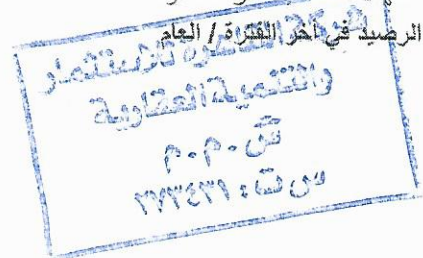 الرصيد في آخر الفترة / العام
شركة القاهرة للاستثمار
والتنمية العقارية
ش.م.م
س ت :